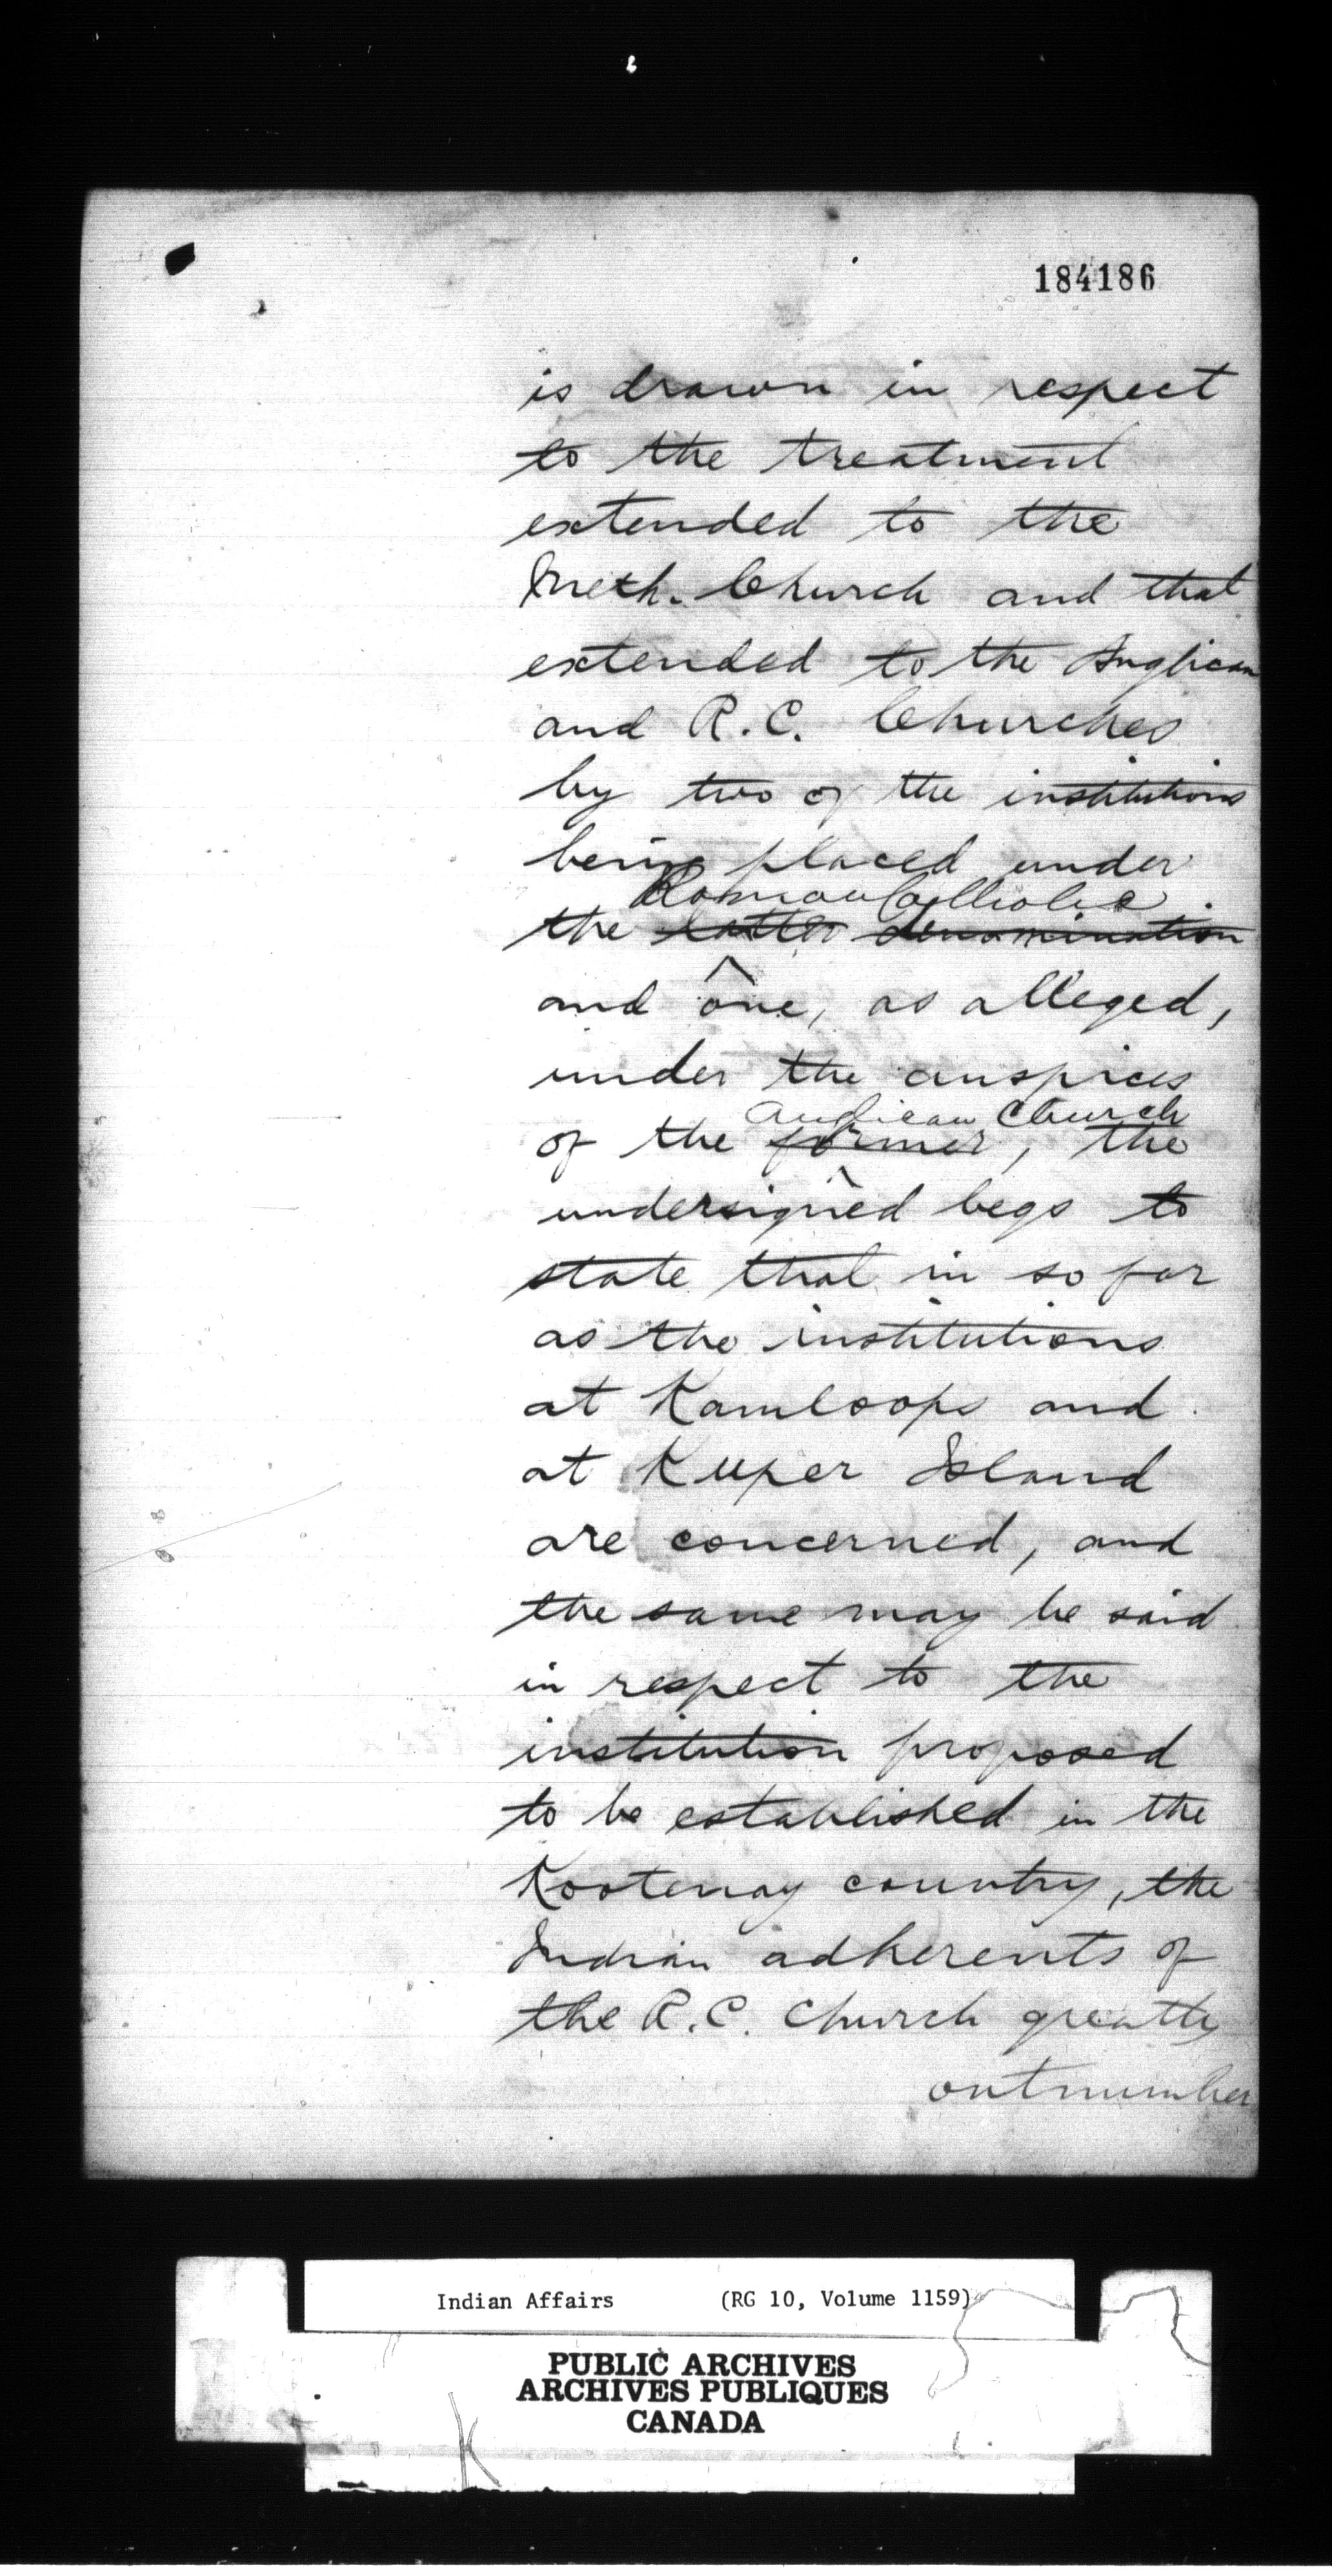 184186
is drawn in respect
to the treatment
extended to the
Meth. Church and that
extended to the Anglican
and R.C. Churches
by two of the institutions
being placed under
Roman Catholic
the latter denomination
and one, as alleged,
under the auspices
Anglican Church
of the former, the
undersigned begs to
state that in so far
as the institutions
at Kamloops and
at Kuper Island
are concerned, and
the same may be said
in respect to the
institution proposed
to be established in the
Kootenay country, the
Indian adherents of
the R.C. Church greatly
outnumber
Indian Affairs (RG 10, Volume 1159)
PUBLIC ARCHIVES
ARCHIVES PUBLIQUES
CANADA